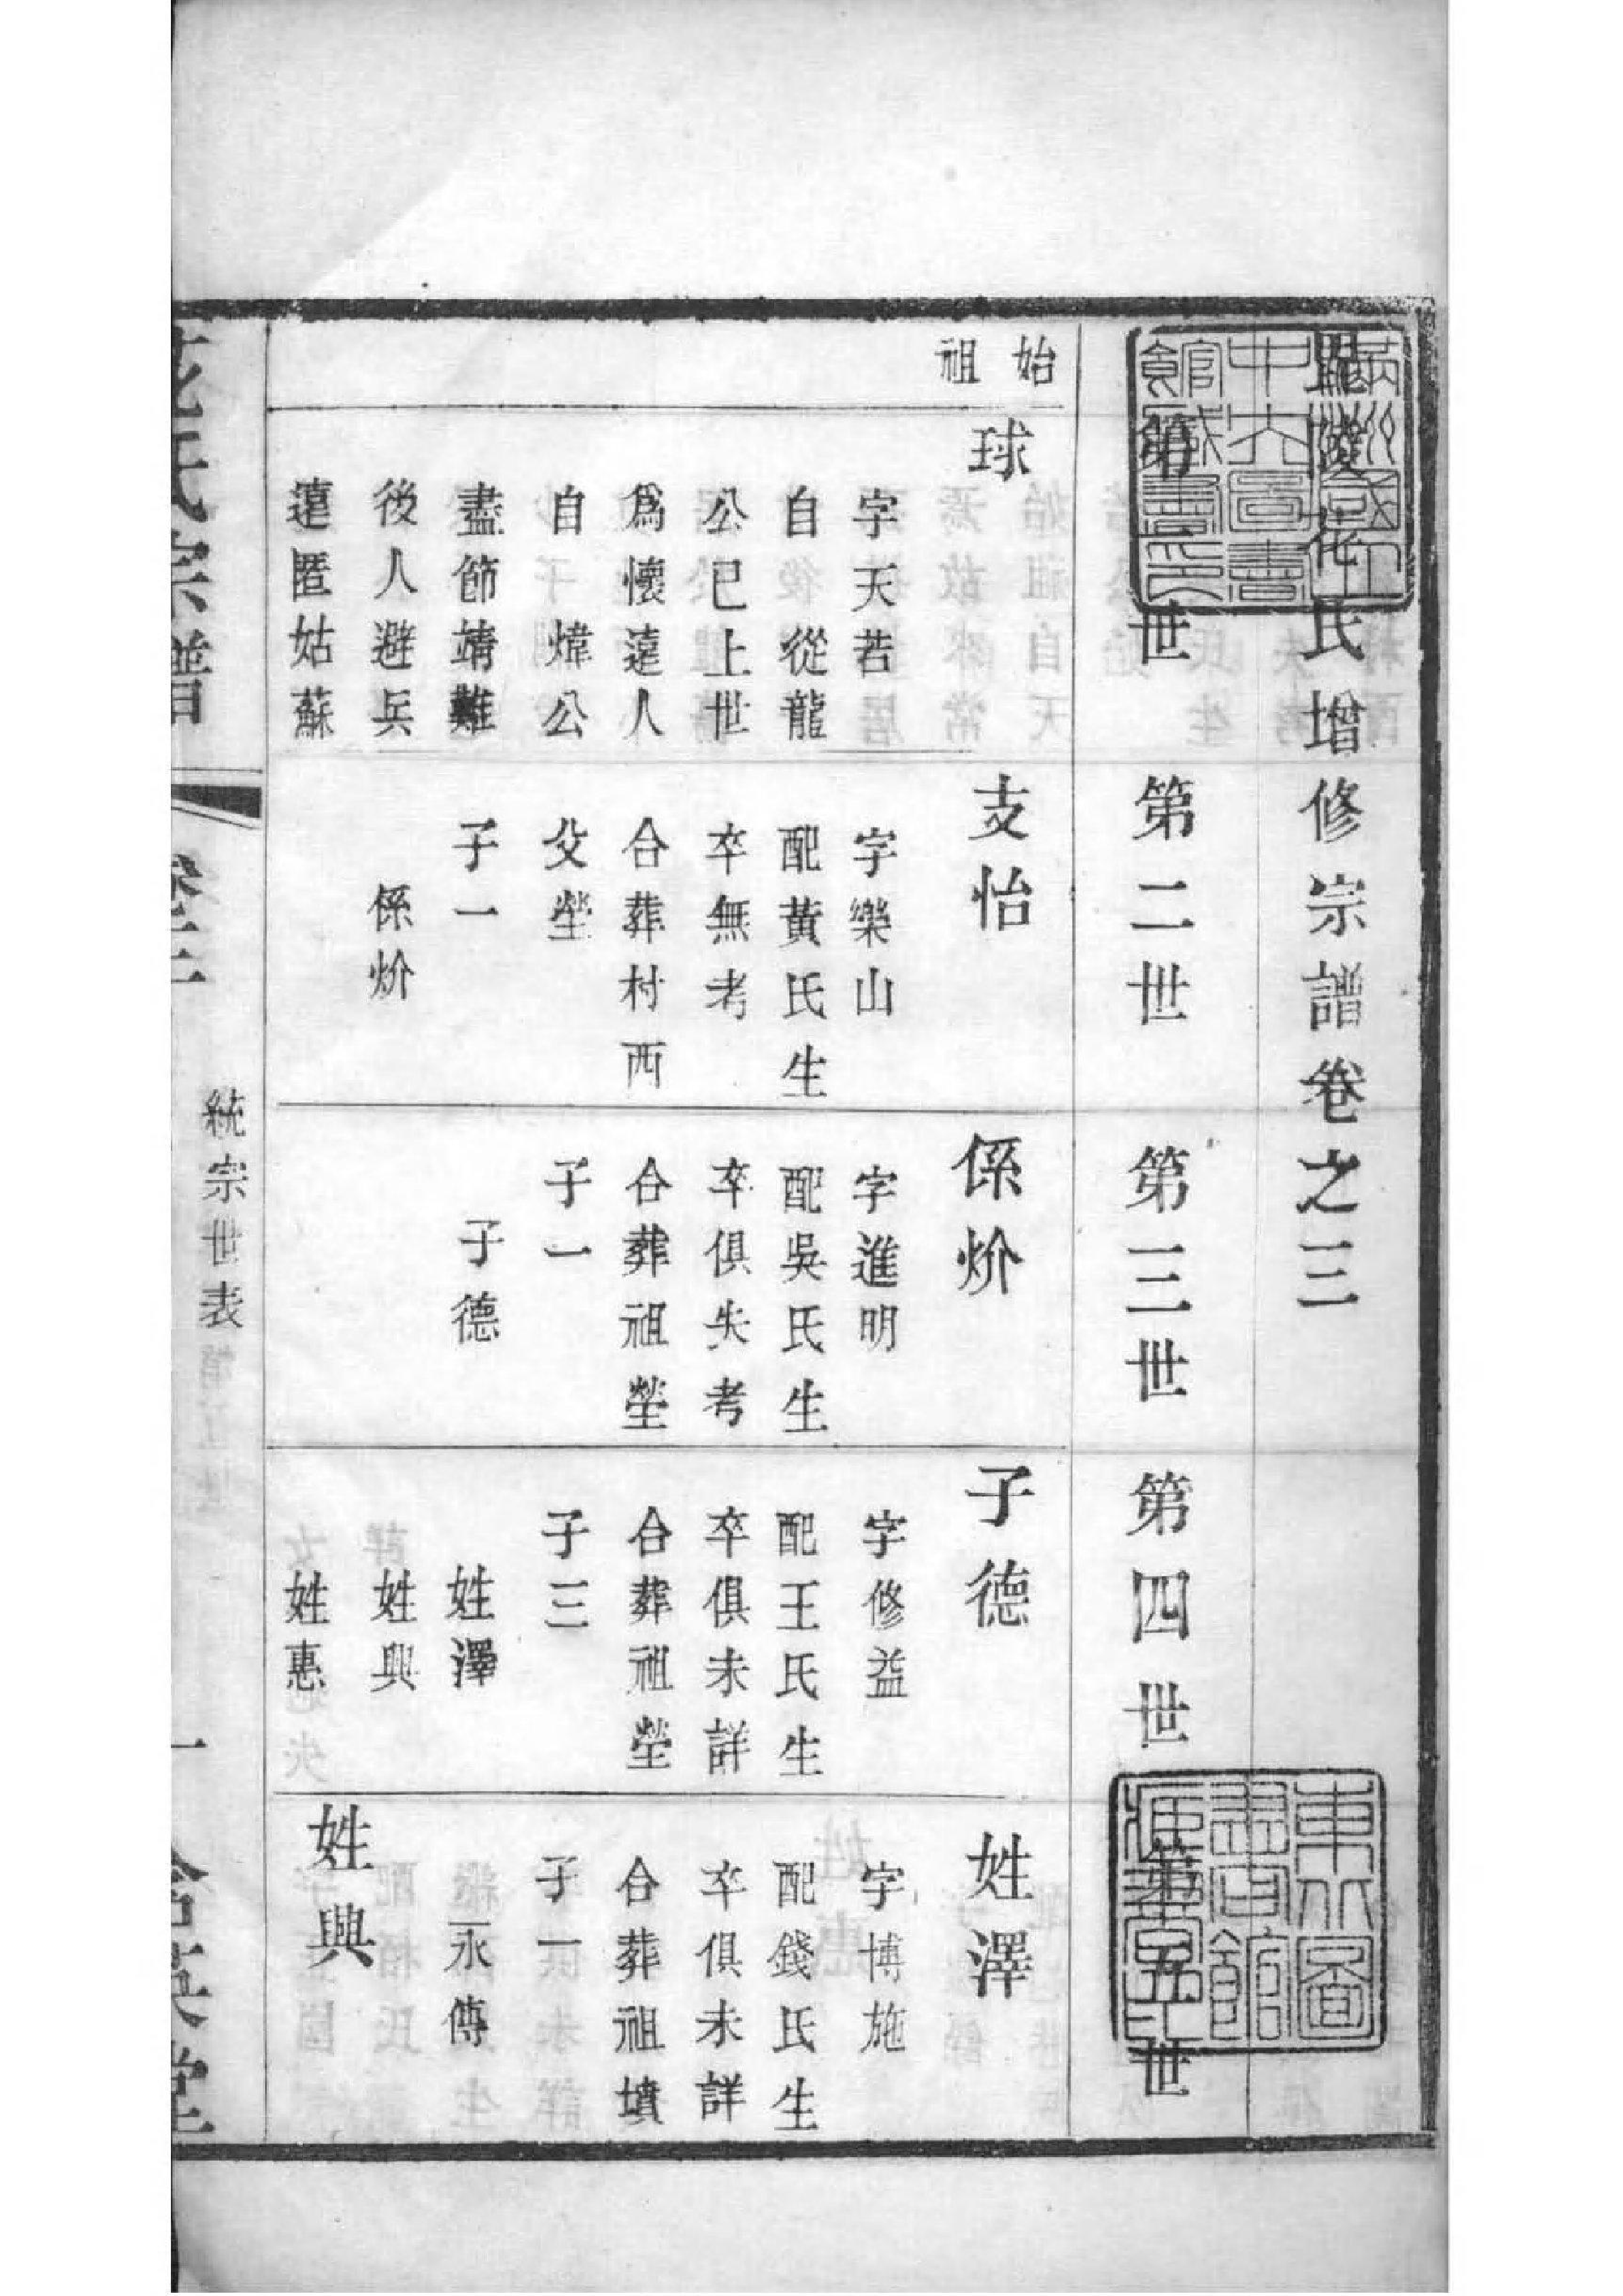 毘陵花氏增修宗譜卷之三
第一世
第二世
第三世
第四世
第五世
始祖
球
字天若
自從龍
公已上世
爲懷遠人
自煒公
盡節靖難
後人避兵
遠匿姑蘇
支怡
字樂山
配黃氏生
卒無考
合葬村西
父塋
子一
係炌
係炌
字進明
配吳氏生
卒俱失考
合葬祖塋
子一
子德
子德
字修益
配王氏生
卒俱未詳
合葬祖塋
子三
姓澤
姓興
姓惠
姓澤
字博施
配錢氏生
卒俱未詳
合葬祖墳
子一
永傳
姓興
花氏宗譜
卷三
統宗世表
一